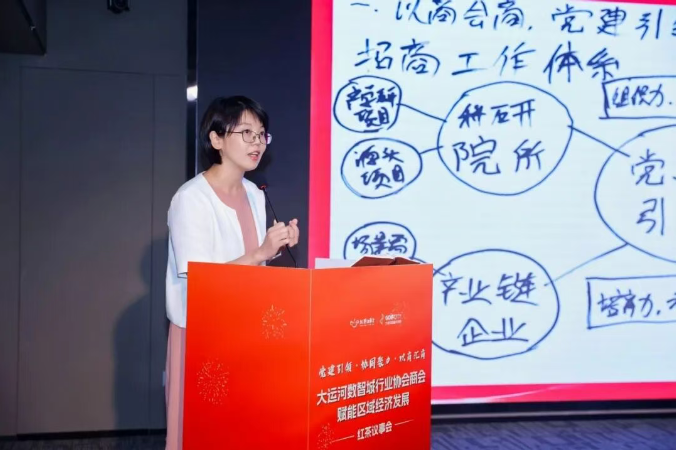 一.以商会商,党建引
招商工作体系
项目
科研
院所
源头
项目
组织力,
党
引
产业链
企业
培育力,
党建引领·协同聚力·以商汇商
大运河数智城行业协会商会
赋能区域经济发展
红茶议事会